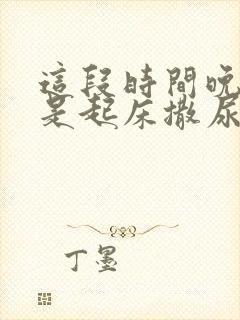 這段時間晚
是起床撒尿
丁墨